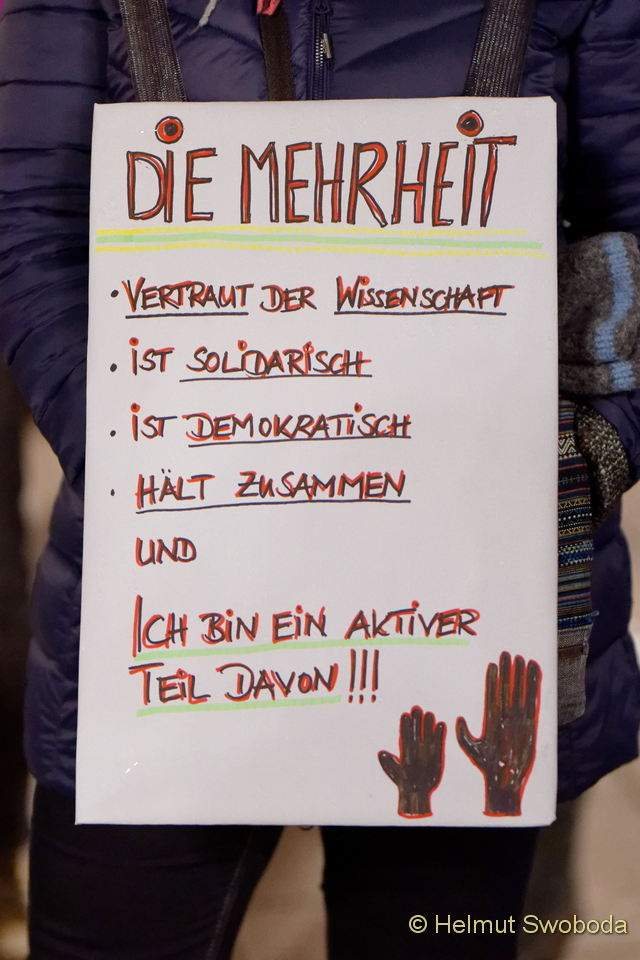 DIE MEHRHEIT
• VERTRAUT DER WISSENSCHAFT
• IST SOLIDARISCH
• IST DEMOKRATISCH
• HÄLT ZUSAMMEN
UND
ICH BIN EIN AKTIVER
TEIL DAVON!!!
© Helmut Swoboda